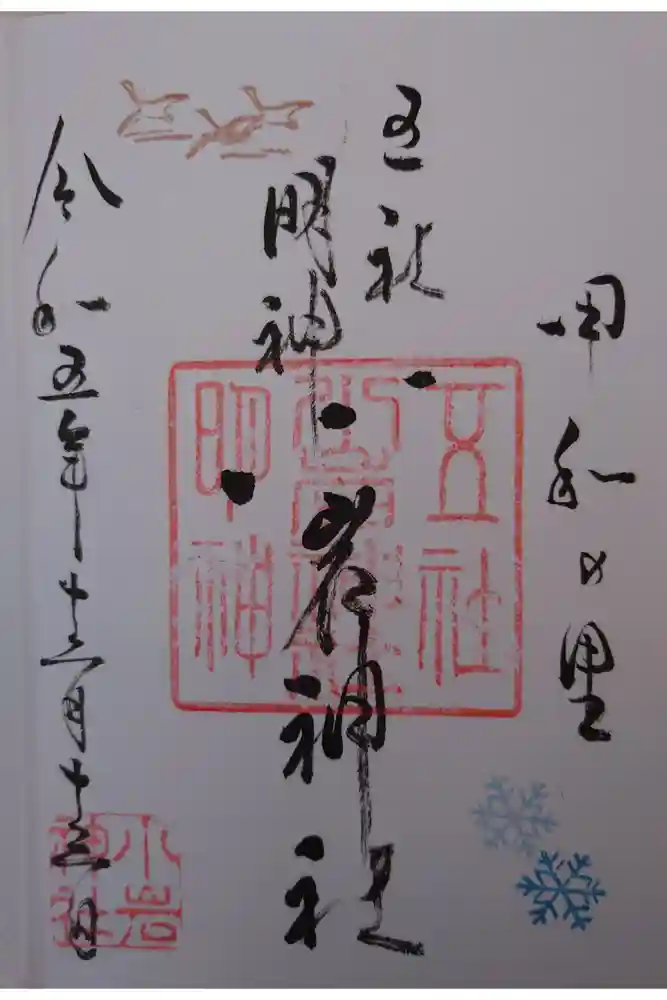 和の里
五社
明神
小岩神社
令和五年十二月十三日
五社
明神
小岩
神社